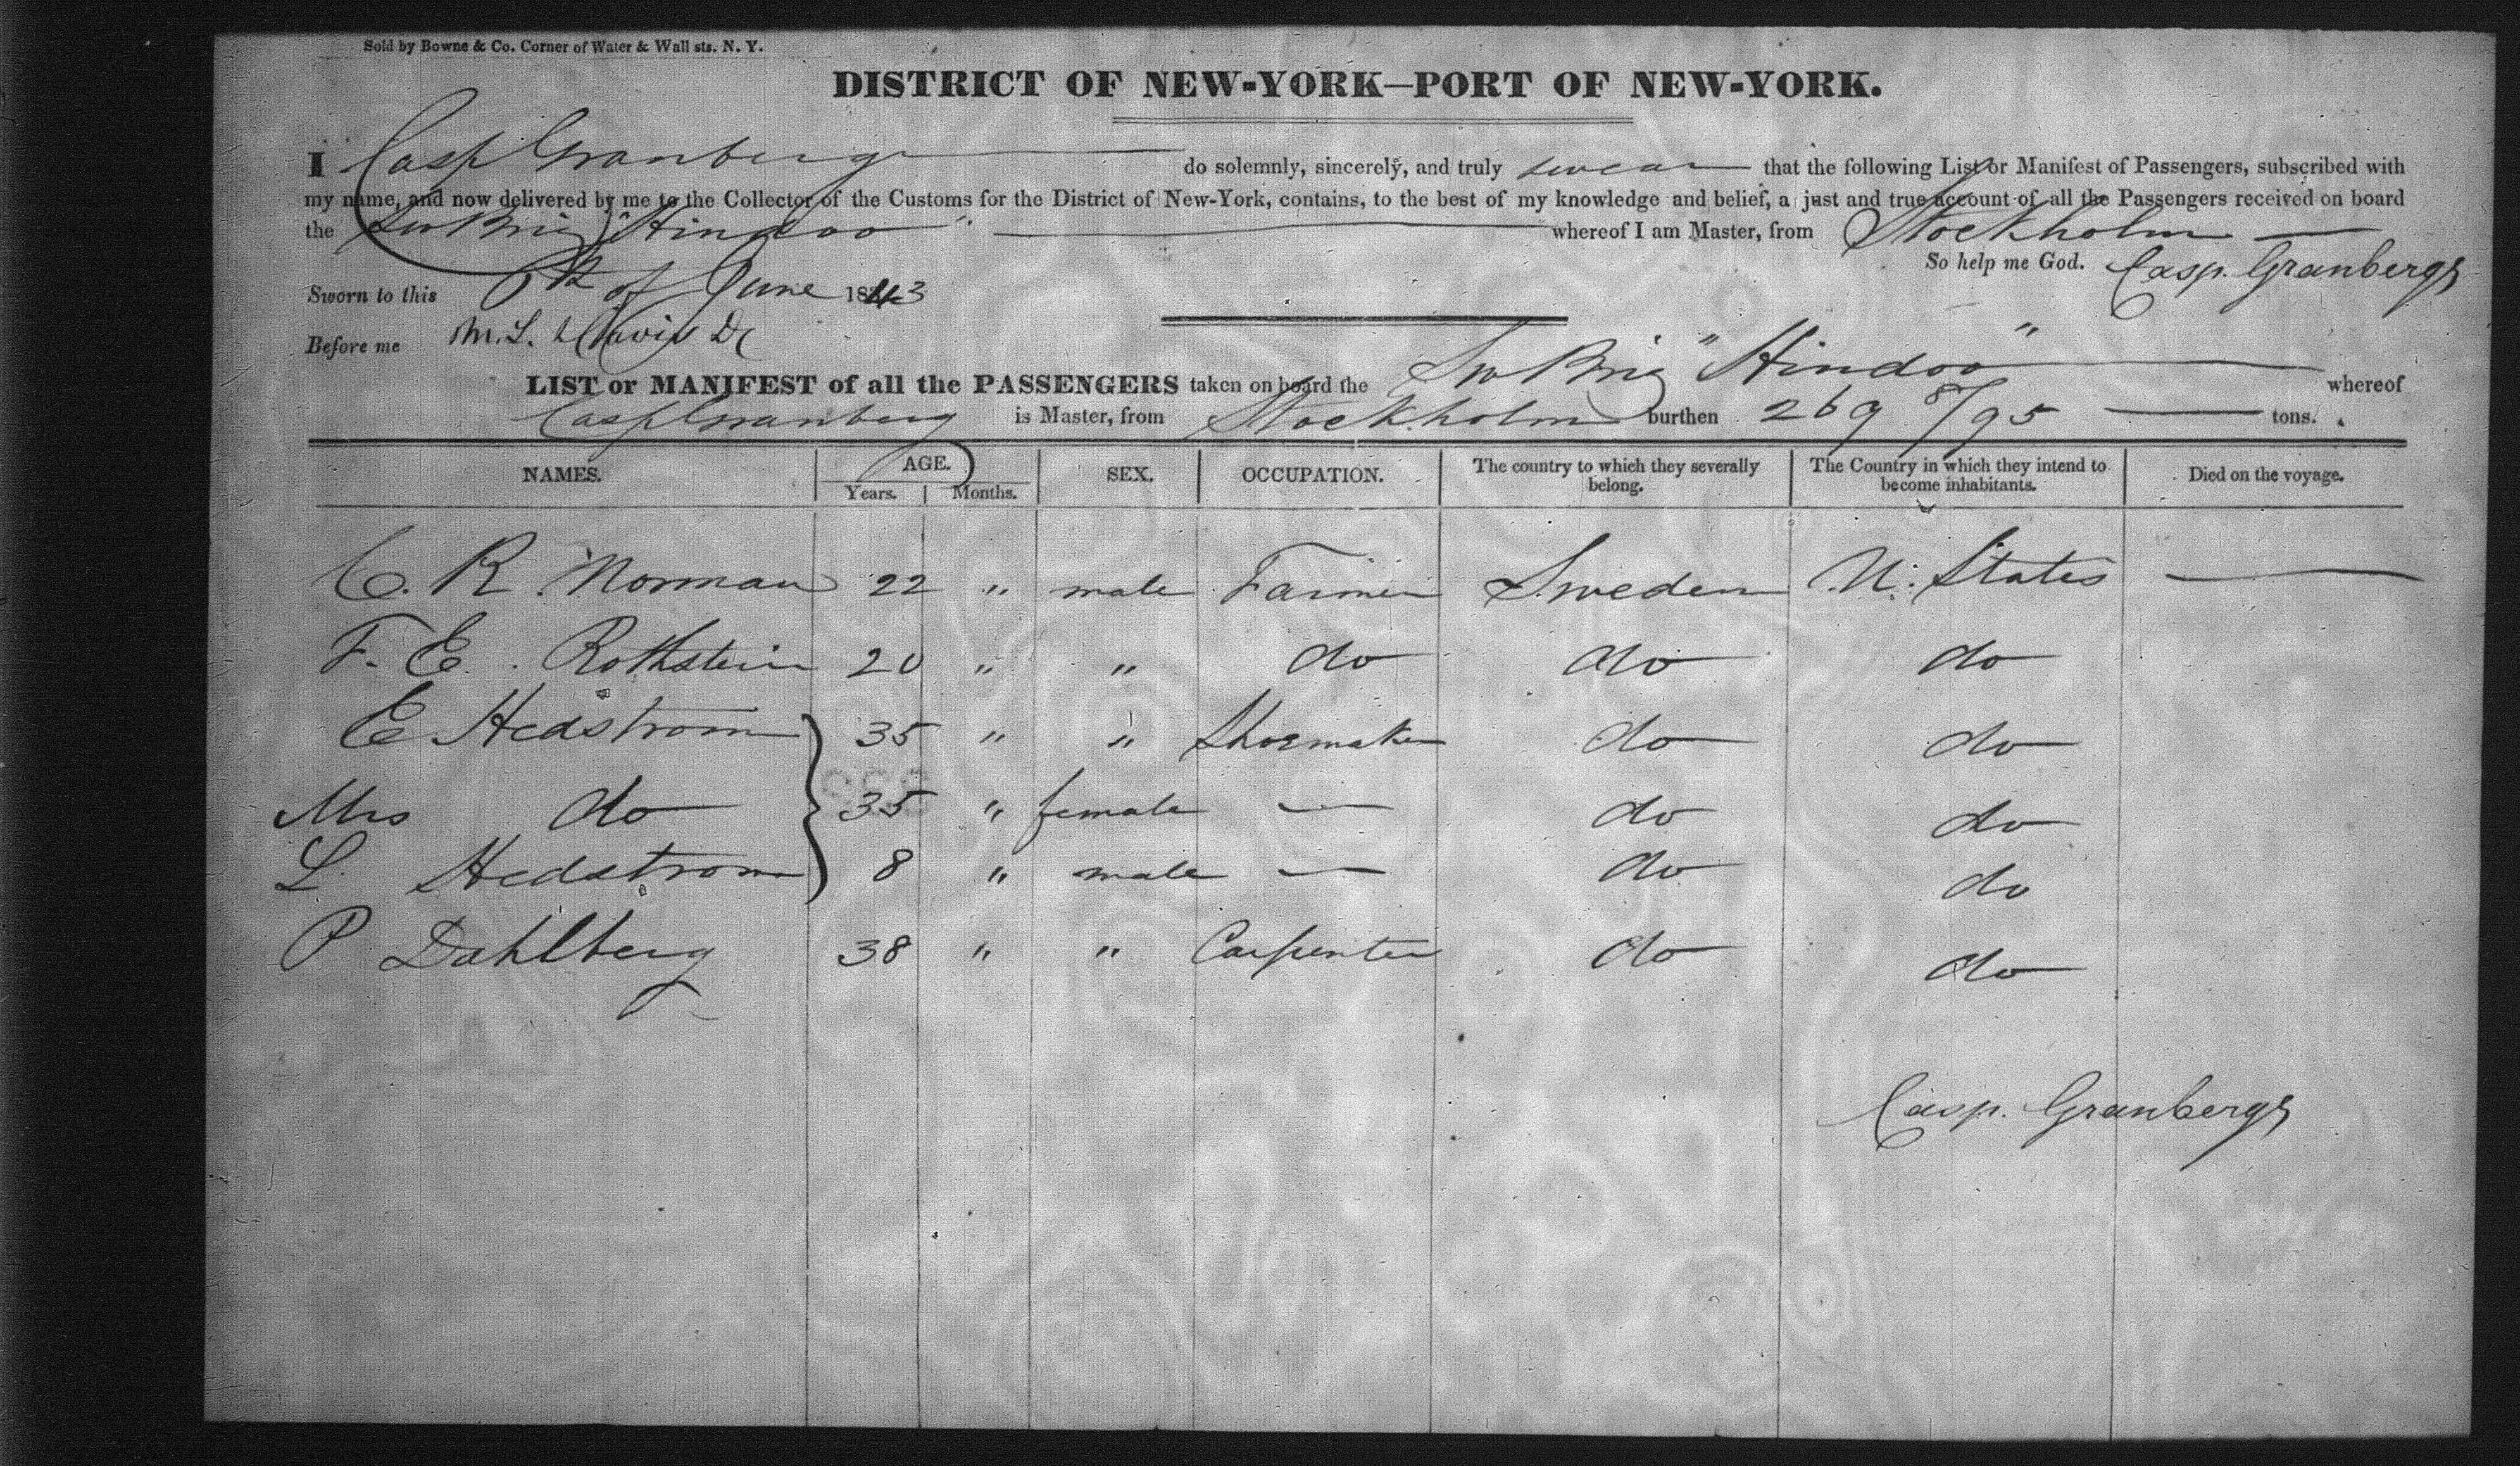 Sold by Bowne & Co. Corner of Water & Wall sts. N. Y.
DISTRICT OF NEW-YORK—PORT OF NEW-YORK.
I Casp Granberg do solemnly, sincerely, and truly swear that the following List or Manifest of Passengers, subscribed with
my name, and now delivered by me to the Collector of the Customs for the District of New-York, contains, to the best of my knowledge and belief, a just and true account of all the Passengers received on board
the Sw Brig "Hindoo" whereof I am Master, from Stockholm
So help me God. Casp. Granberg
Sworn to this of June 1843
Before me M. L. Davis
LIST or MANIFEST of all the PASSENGERS taken on board the Sw Brig "Hindoo" whereof
Casp Granberg is Master, from Stockholm burthen 269 8/95 tons.
NAMES. AGE. Years. Months. SEX. OCCUPATION. The country to which they severally belong. The Country in which they intend to become inhabitants. Died on the voyage.
C. R. Norman 22 " male Farmer Sweden U. States —
F. E. Rothstein 20 " " do do do
E Hedstrom 35 " " Shoemaker do do
Mrs do 35 " female — do do
L. Hedstrom 8 " male — do do
P Dahlberg 38 " " Carpenter do do
Casp. Granberg